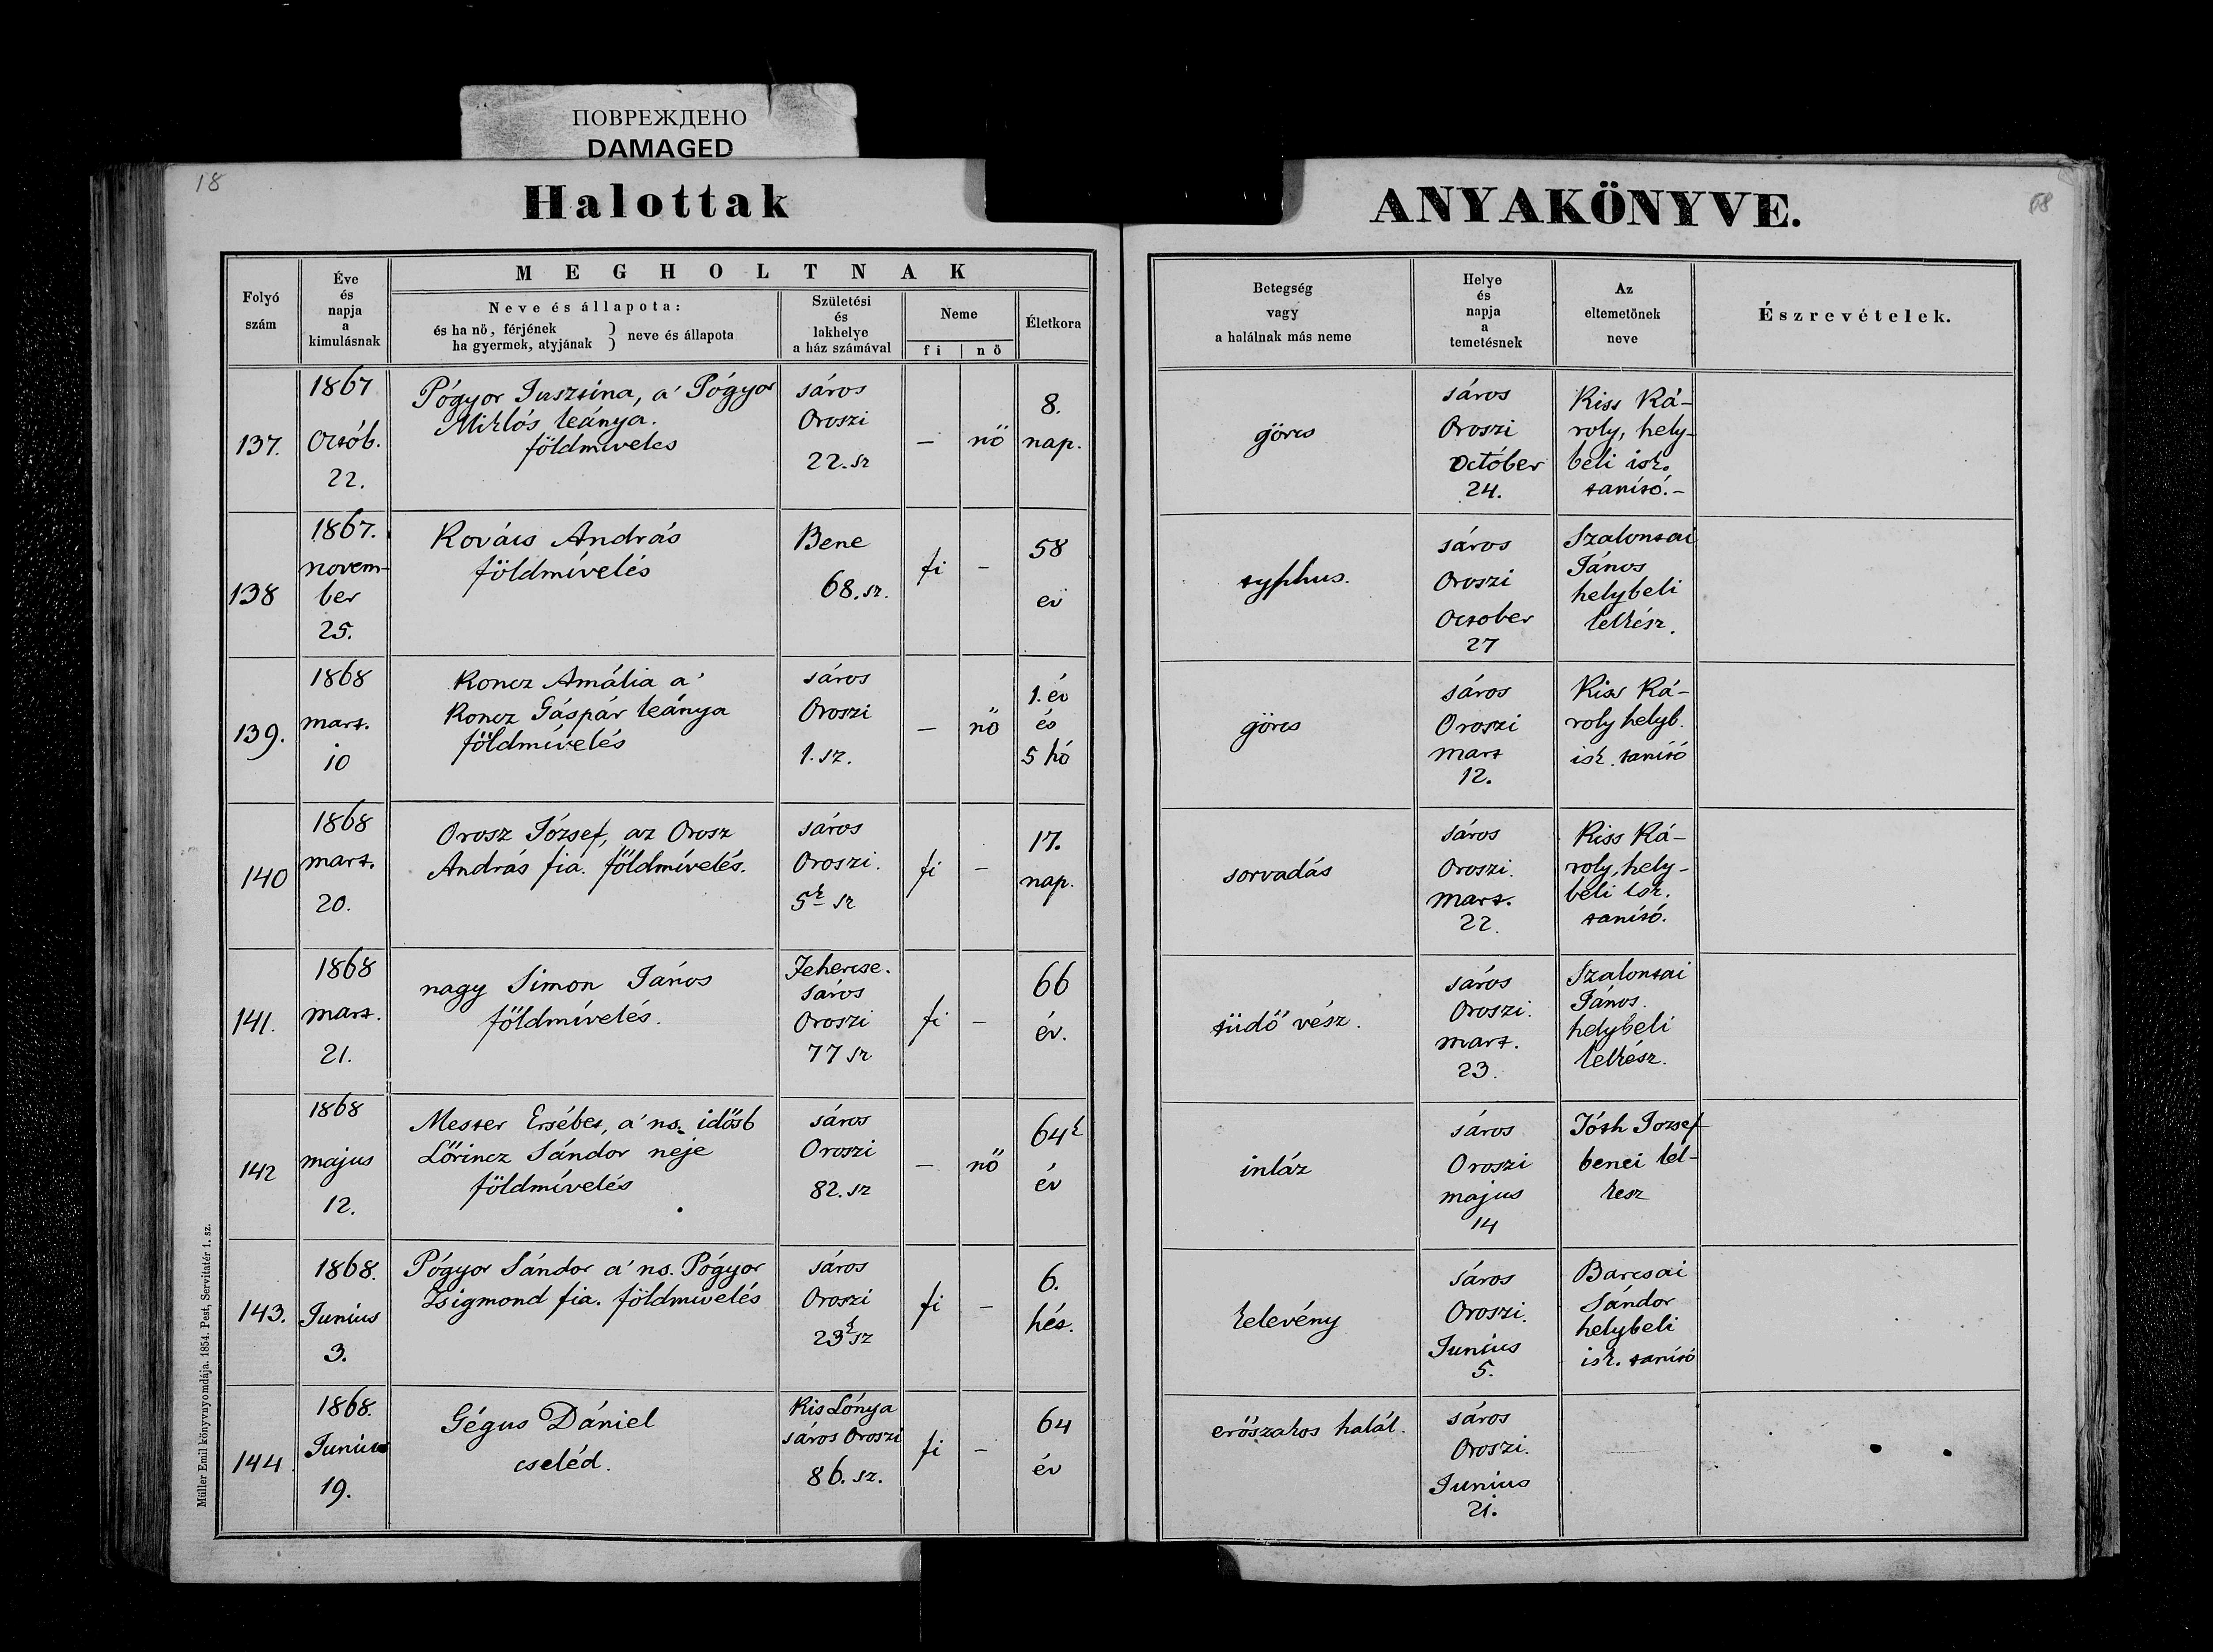 ПОВРЕЖДЕНО
DAMAGED
18
Halottak
ANYAKÖNYVE.
68
Folyó
szám
Éve
és
napja
a
kimulásnak
MEGHOLTNAK
Neve és állapota:
és ha nö, férjének
ha gyermek, atyjának } neve és állapota
Születési
és
lakhelye
a ház számával
Neme
fi | nö
Életkora
Betegség
vagy
a halálnak más neme
Helye
és
napja
a
temetésnek
Az
eltemetönek
neve
Észrevételek.
137.
1867
Octób.
22.
Pógyor Jusztina, a' Pógyor
Miklós leánya.
földmiveles
sáros
Oroszi
22. sz
—
nö
8.
nap.
görcs
sáros
Oroszi
October
24.
Kiss Ká-
roly, hely-
beli isk.
tanító.-
138
1867.
novem-
ber
25.
Kovács András
földmívelés
Bene
68. sz.
fi
–
58
ev
typhus.
sáros
Oroszi
October
27
Szalontai
János
helybeli
lelkész.
139.
1868
mart.
10
Koncz Amália a'
Koncz Gáspár leánya
földmívelés
sáros
Oroszi
1. sz.
—
nö
1. év
és
5 hó
görcs
sáros
Oroszi
mart
12.
Kiss Ká-
roly helyb.
isk. tanító
140
1868
mart.
20.
Orosz József, az Orosz
András fia. földmívelés.
sáros
Oroszi.
5k sz
fi
–
17.
nap.
sorvadás
sáros
Oroszi.
mart.
22.
Kiss Ká-
roly, hely-
beli isk.
tanító.
141.
1868
mart.
21.
nagy Simon János
földmívelés.
Fehercse.
sáros
Oroszi
77 sz
fi
–
66
év.
tüdő vész.
sáros
Oroszi.
mart.
23.
Szalontai
János.
helybeli
lelkész.
142
1868
majus
12.
Mester Ersébet, a' ns. idősb
Lőrincz Sándor neje
földmívelés
sáros
Oroszi
82. sz
—
nő
64k
év
inláz
sáros
Oroszi
majus
14
Tóth Jozsef
benei lel-
kesz
143.
1868.
Junius
3.
Pógyor Sándor a' ns. Pógyor
Zsigmond fia. földmivelés
sáros
Oroszi
23k sz
fi
–
6.
hét.
kelevény
sáros
Oroszi.
Junius
5.
Barcsai
Sándor
helybeli
isk. tanitó
144.
1868.
Junius
19.
Gégus Dániel
cseléd.
Kis Lónya
sáros Oroszi
86. sz.
fi
–
64
év
erőszakos halál.
sáros
Oroszi.
Junius
21.
Müller Emil könyvnyomdája. 1854. Pest, Servitatér 1. sz.